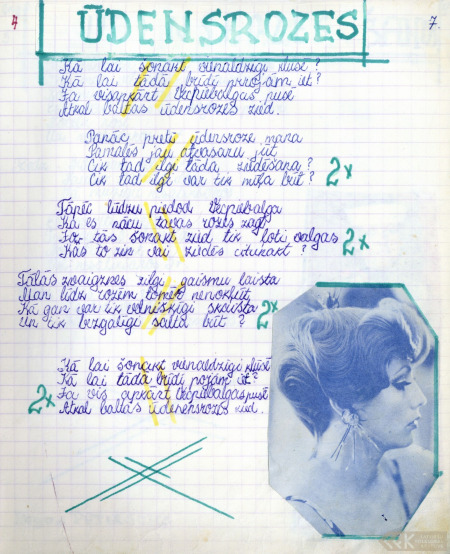 4
7.
ŪDENSROZES
Kā lai šonakt vienaldzīgi klust?
Kā lai tādā brīdī projām iet?
Ja visapkārt Vecpiebalgas puse
Atkal baltas ūdensrozes zied.
Panāc pretī ūdensroze mana
Pamalēs jau atvasaru jūt
Cik tad ilgi tāda ziedēšana?
Cik tad ilgi var tik mīļa būt?
2x
Tāpēc lūdzu piedod Vecpiebalga
Ka es nācu tavas rozes zagt
Jo tās šonakt zied tik ļoti valgas
Kas to zin vai ziedēs citunakt?
2x
Tālās zvaigznes zilgi gaismu laista
Man līdz rozēm tomēr nenokļūt
Kā gan var tik velnišķīgi skaista
Un tik bezgalīgi salta būt?
2x
Kā lai šonakt vienaldzīgi klust
Kā lai tādā brīdī projām iet?
Ja vis apkārt Vecpiebalgas pusē
Atkal baltas ūdensrozes zied.
2x